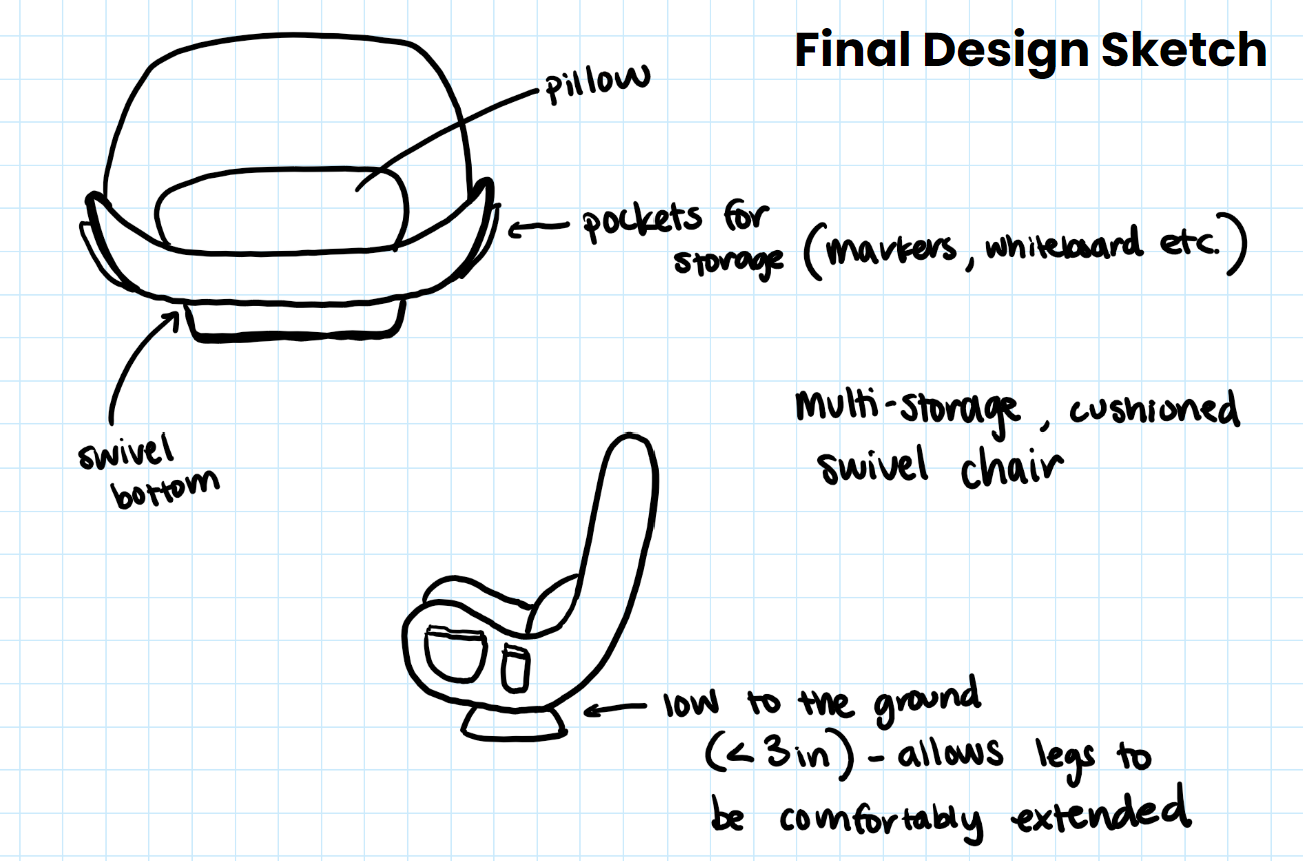 Final Design Sketch
pillow
pockets for
storage (markers, whiteboard etc.)
swivel
bottom
multi-storage, cushioned
swivel chair
low to the ground
(<3in) - allows legs to
be comfortably extended